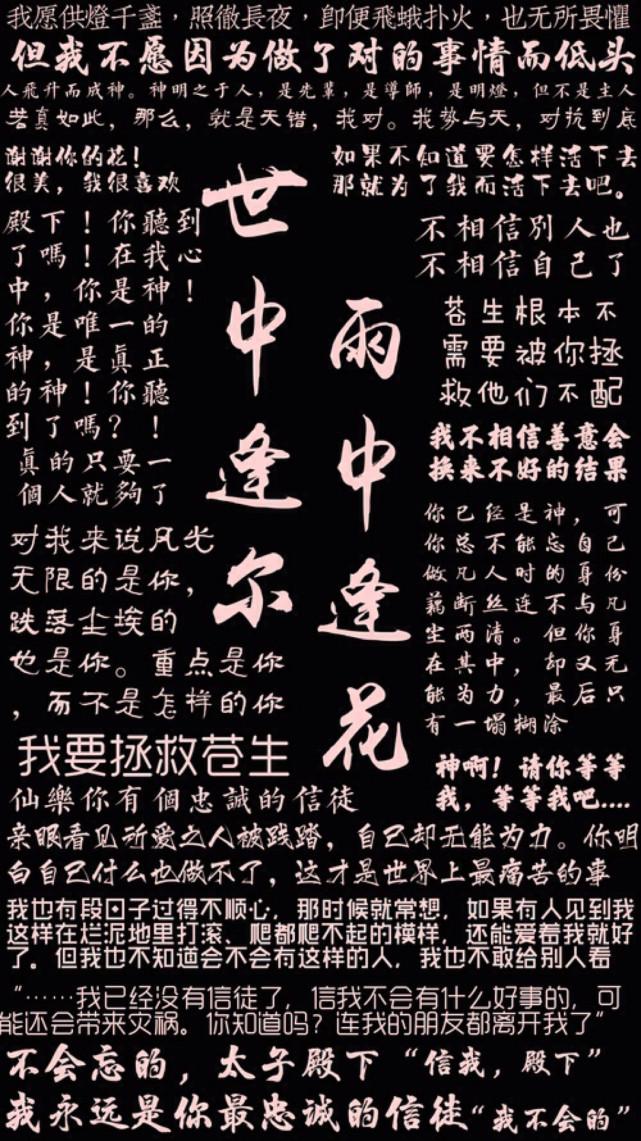 我愿供燈千盞，照徹長夜，即便飛蛾扑火，也无所畏懼
但我不愿因为做了对的事情而低头
人飛升而成神。神明之于人，是先輩，是導師，是明燈，但不是主人
若真如此，那么，就是天错，我对。我势与天，对抗到底
谢谢你的花！
很美，我很喜欢
如果不知道要怎样活下去
那就为了我而活下去吧。
世中逢尔
雨中逢花
殿下！你聽到
了嗎！在我心
中，你是神！
你是唯一的
神，是真正
的神！你聽
到了嗎？！
真的只要一
個人就夠了
不相信别人也
不相信自己了
苍生根本不
需要被你拯
救他们不配
我不相信善意会
换来不好的结果
你已经是神，可
你总不能忘自己
做凡人时的身份
藕断丝连不与凡
尘两清。但你身
在其中，却又无
能为力，最后只
有一塌糊涂
对我来说风光
无限的是你，
跌落尘埃的
也是你。重点是你
，而不是怎样的你
我要拯救苍生
仙樂你有個忠誠的信徒
神啊！请你等等
我，等等我吧....
亲眼看见所爱之人被践踏，自己却无能为力。你明
白自己什么也做不了，这才是世界上最痛苦的事
我也有段日子过得不顺心，那时候就常想，如果有人见到我
这样在烂泥地里打滚、爬都爬不起的模样，还能爱着我就好
了。但我也不知道会不会有这样的人，我也不敢给别人看
“……我已经没有信徒了，信我不会有什么好事的，可
能还会带来灾祸。你知道吗？连我的朋友都离开我了”
不会忘的，太子殿下“信我，殿下”
我永远是你最忠誠的信徒“我不会的”